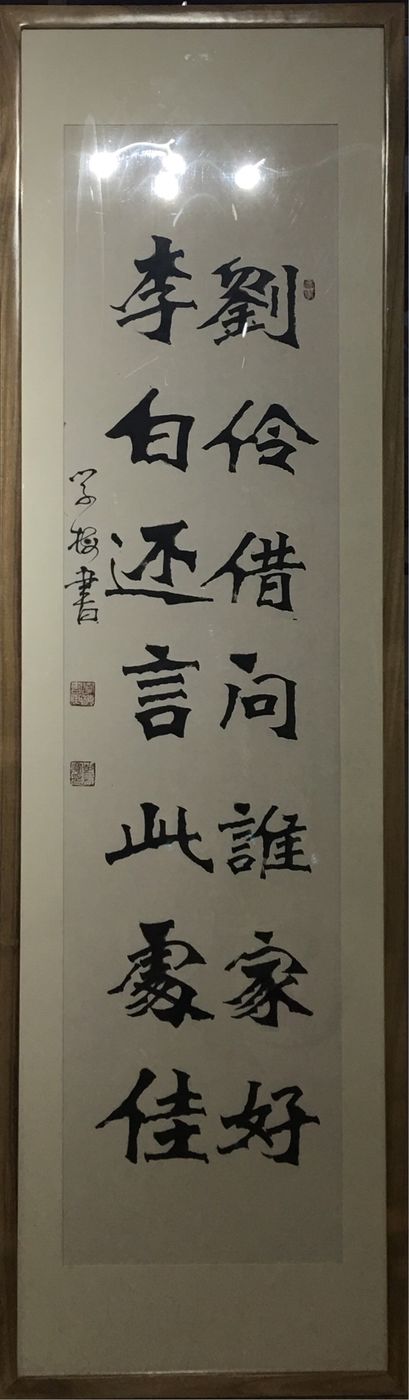 劉伶借问誰家好
李白还言此處佳
学梅書